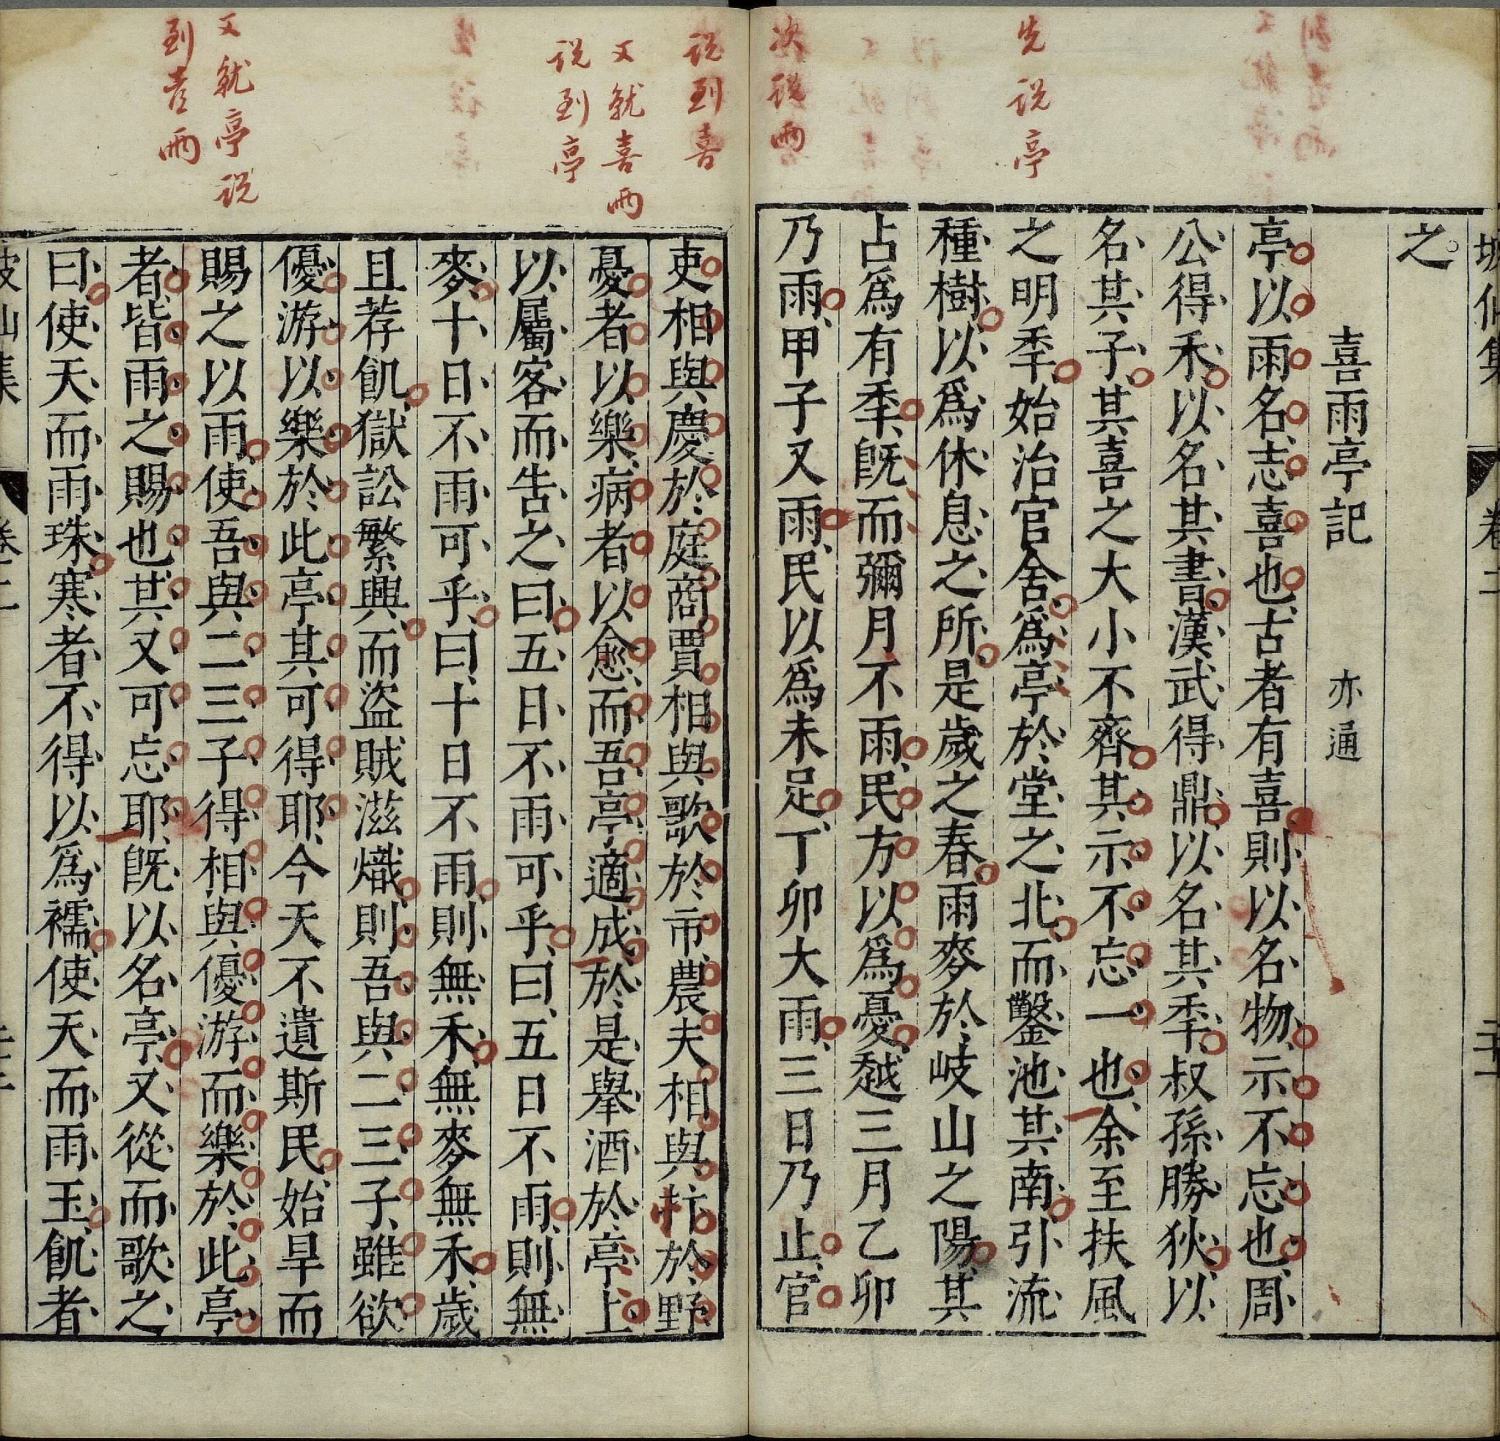 坡仙集 卷二
之
喜雨亭記 亦通
先说亭
次说雨
亭以雨名志喜也古者有喜則以名物示不忘也周
公得禾以名其書漢武得鼎以名其秊叔孫勝狄以
名其子其喜之大小不齊其示不忘一也余至扶風
之明秊始治官舍爲亭於堂之北而鑿池其南引流
種樹以爲休息之所是歲之春雨麥於岐山之陽其
占爲有秊旣而彌月不雨民方以爲憂越三月乙卯
乃雨甲子又雨民以爲未足丁卯大雨三日乃止官
说到喜
又就喜雨
说到亭
又就亭说
到喜雨
吏相與慶於庭商賈相與歌於市農夫相與抃於野
憂者以樂病者以愈而吾亭適成於是舉酒於亭上
以屬客而告之曰五日不雨可乎曰五日不雨則無
麥十日不雨可乎曰十日不雨則無禾無麥無禾歲
且荐飢獄訟繁興而盜賊滋熾則吾與二三子雖欲
優游以樂於此亭其可得耶今天不遺斯民始旱而
賜之以雨使吾與二三子得相與優游而樂於此亭
者皆雨之賜也其又可忘耶旣以名亭又從而歌之
曰使天而雨珠寒者不得以爲襦使天而雨玉飢者